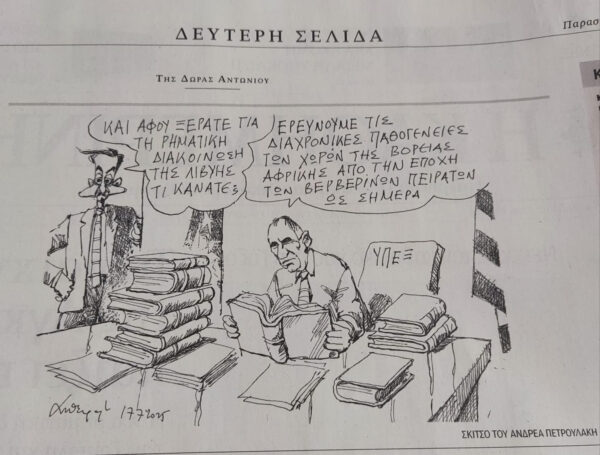 ΔΕΥΤΕΡΗ ΣΕΛΙΔΑ
Παρασ
ΤΗΣ ΔΩΡΑΣ ΑΝΤΩΝΙΟΥ
Κ
ΚΑΙ ΑΦΟΥ ΞΕΡΑΤΕ ΓΙΑ
ΤΗ ΡΗΜΑΤΙΚΗ
ΔΙΑΚΟΙΝΩΣΗ
ΤΗΣ ΛΙΒΥΗΣ
ΤΙ ΚΑΝΑΤΕ;
ΕΡΕΥΝΟΥΜΕ ΤΙΣ
ΔΙΑΧΡΟΝΙΚΕΣ ΠΑΘΟΓΕΝΕΙΕΣ
ΤΩΝ ΧΩΡΩΝ ΤΗΣ ΒΟΡΕΙΑΣ
ΑΦΡΙΚΗΣ ΑΠΟ ΤΗΝ ΕΠΟΧΗ
ΤΩΝ ΒΕΡΒΕΡΙΝΩΝ ΠΕΙΡΑΤΩΝ
ΩΣ ΣΗΜΕΡΑ
ΥΠΕΞ
17.7.2025
ΣΚΙΤΣΟ ΤΟΥ ΑΝΔΡΕΑ ΠΕΤΡΟΥΛΑΚΗ